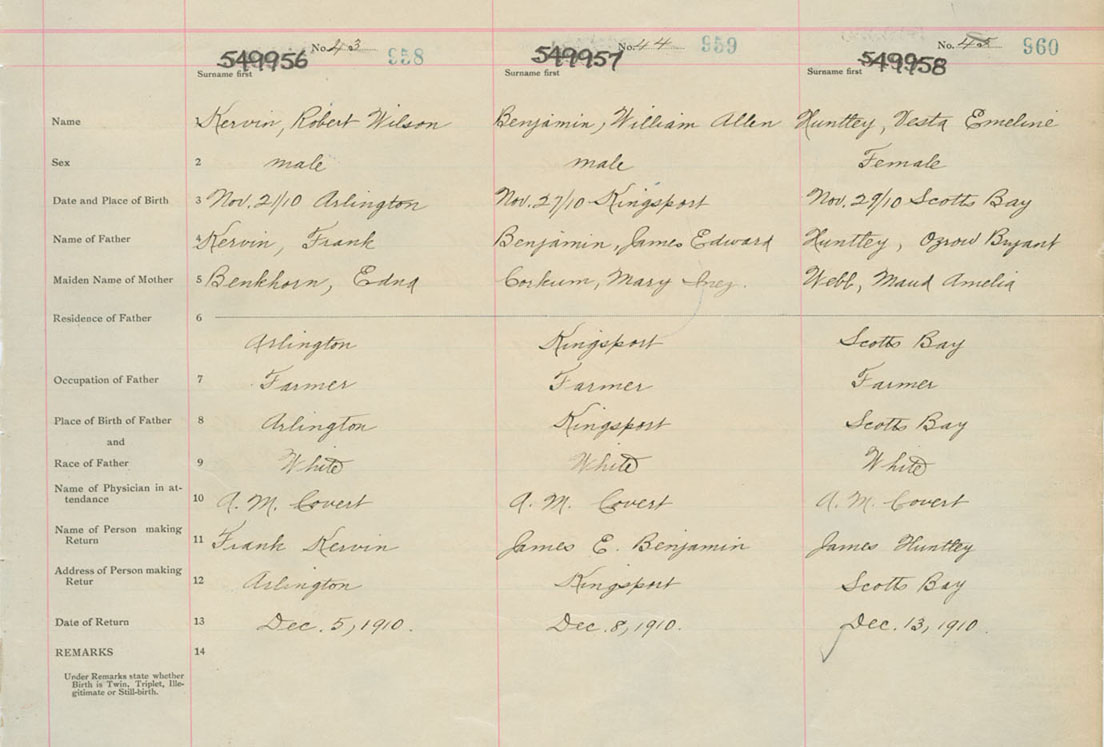 549956 No. 43 958 549957 No. 44 959 549958 No. 45 960
Surname first Surname first Surname first
Name 1 Kervin, Robert Wilson Benjamin, William Allen Huntley, Vesta Emeline
Sex 2 male male Female
Date and Place of Birth 3 Nov. 21/10 Arlington Nov. 27/10 Kingsport Nov. 29/10 Scotts Bay
Name of Father 4 Kervin, Frank Benjamin, James Edward Huntley, Bryant
Maiden Name of Mother 5 Benkhorn, Edna Corkum, Mary Inez. Webb, Maud Amelia
Residence of Father 6
Arlington Kingsport Scotts Bay
Occupation of Father 7 Farmer Farmer Farmer
Place of Birth of Father 8 Arlington Kingsport Scotts Bay
and
Race of Father 9 White White White
Name of Physician in at-
tendance 10 A. M. Covert A. M. Covert A. M. Covert
Name of Person making
Return 11 Frank Kervin James E. Benjamin James Huntley
Address of Person making
Retur 12 Arlington Kingsport Scotts Bay
Date of Return 13 Dec. 5, 1910. Dec. 8, 1910. Dec. 13, 1910.
REMARKS 14
Under Remarks state whether
Birth is Twin, Triplet, Ille-
gitimate or Still-birth.